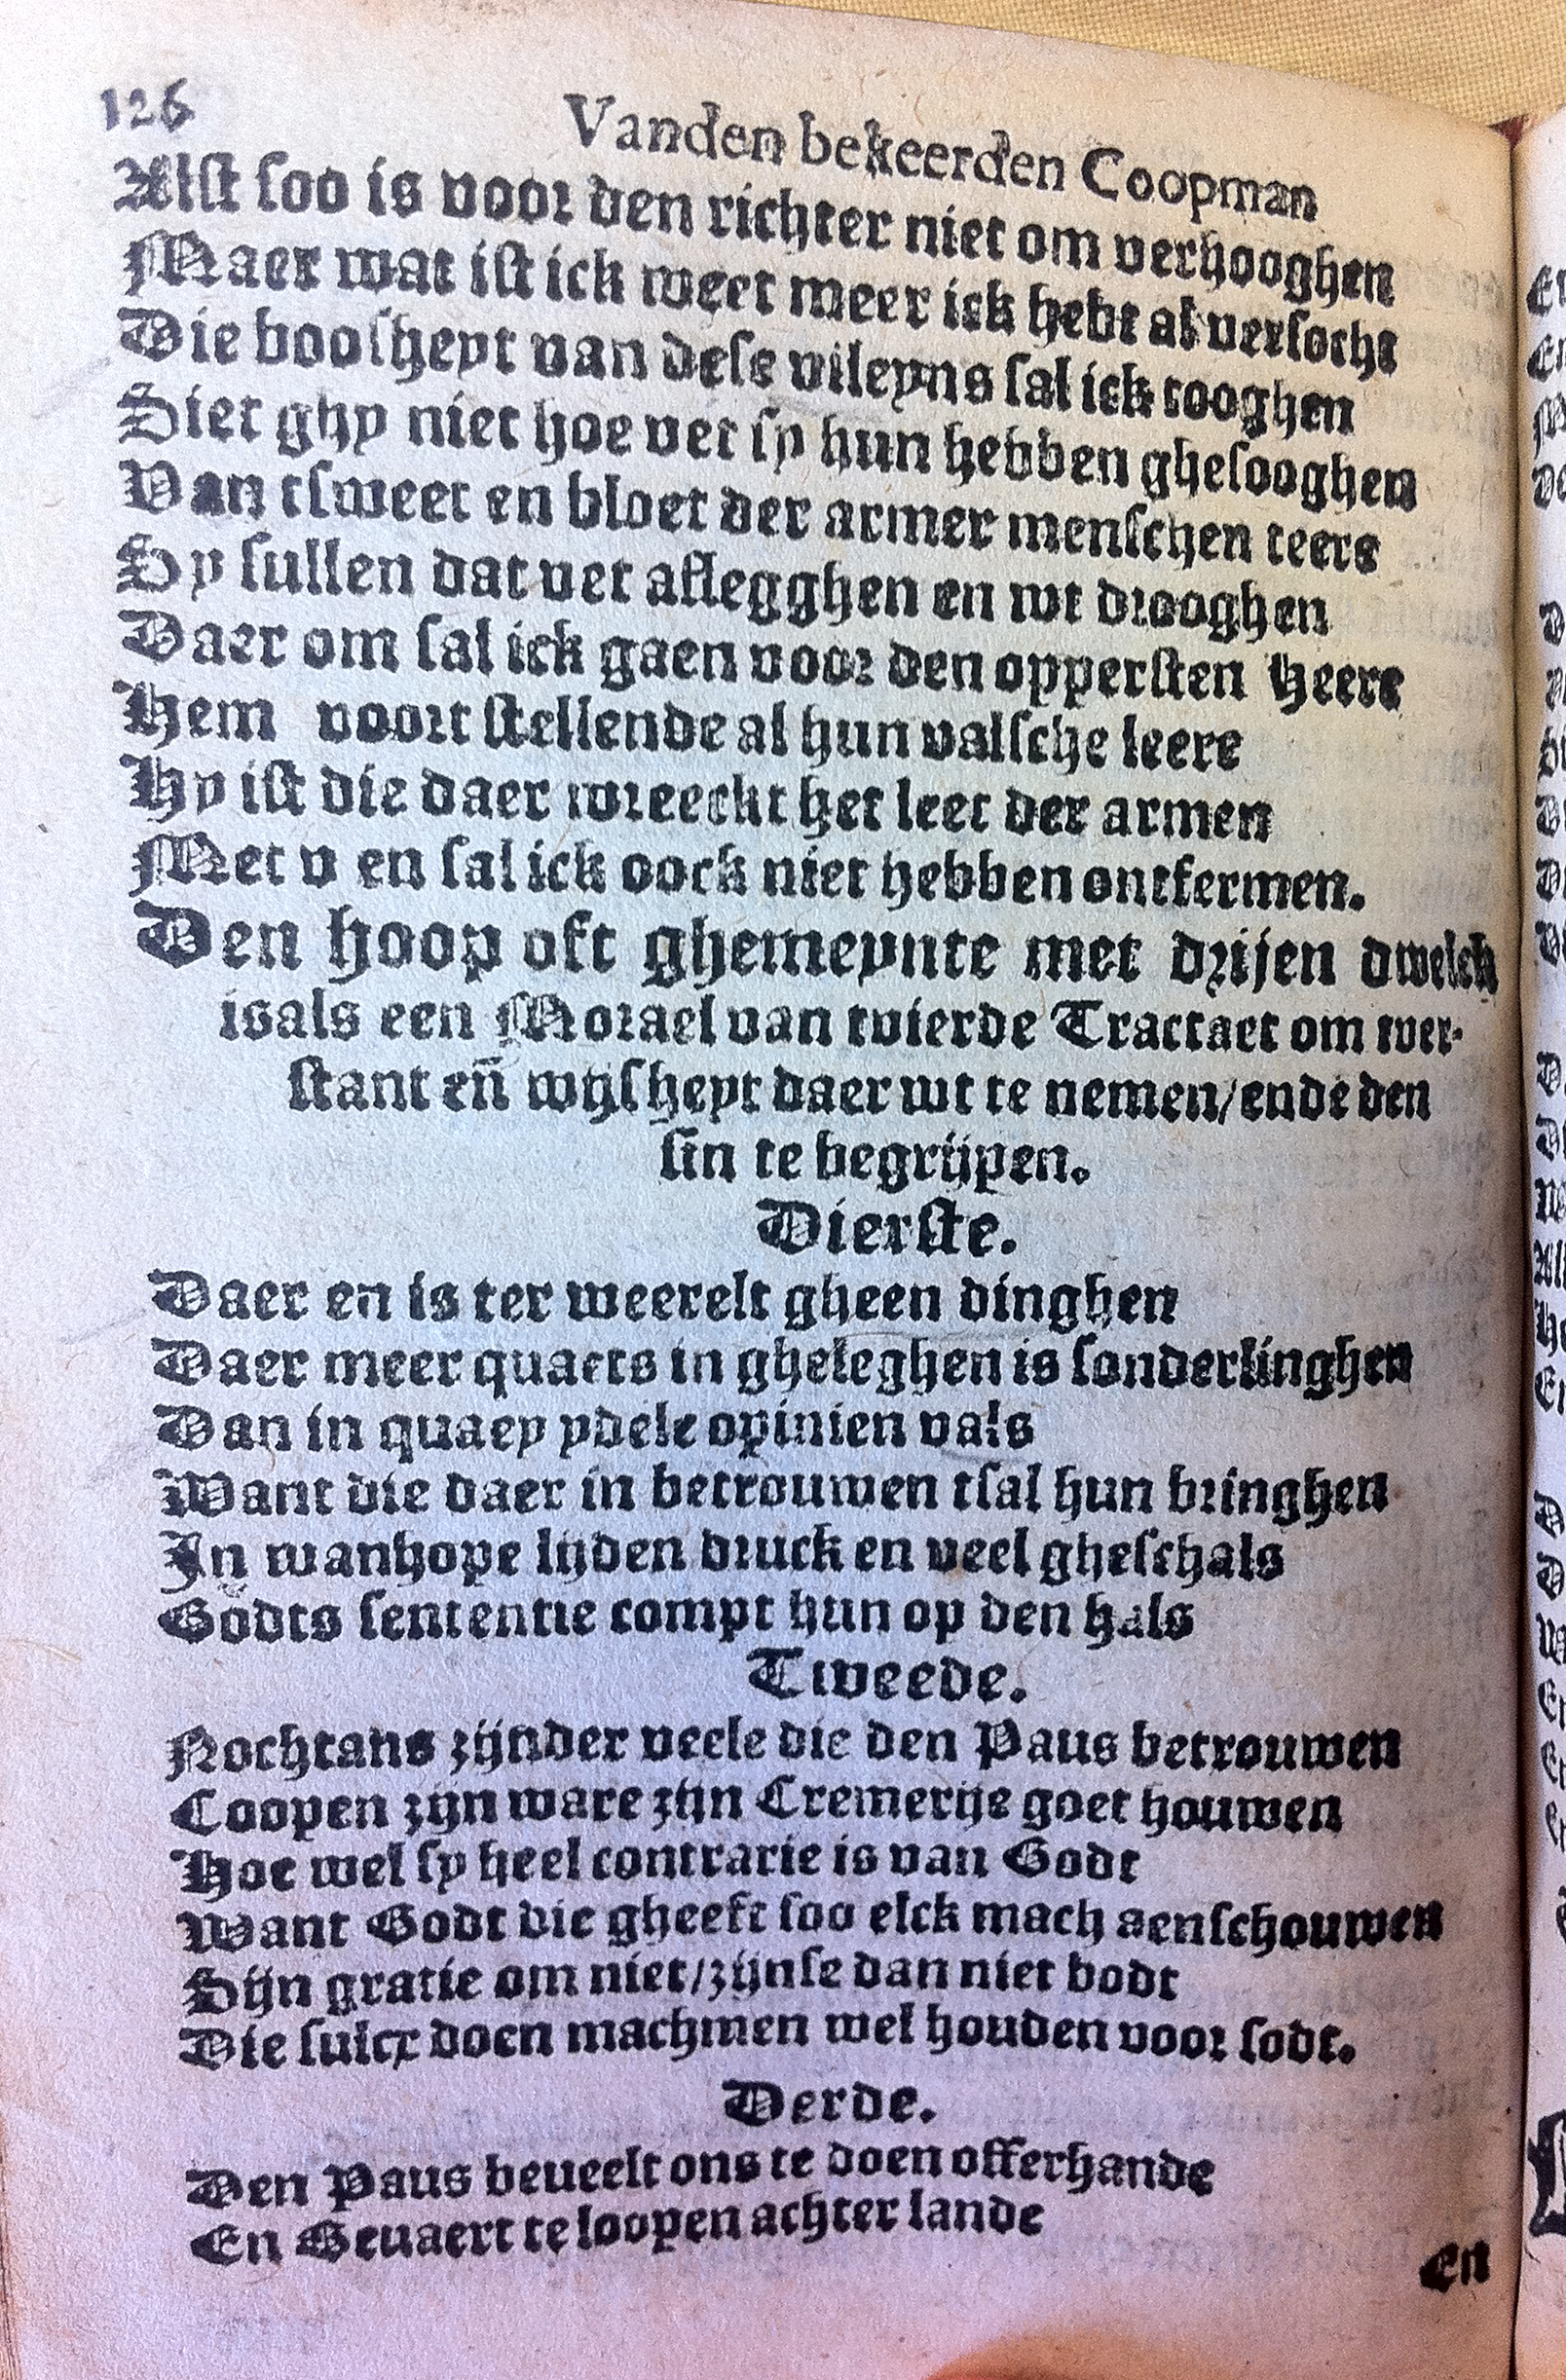 126
Vanden bekeerden Coopman
Alst soo is voor den richter niet om verhooghen
Maer wat ist ick weet meer ick hebt al versocht
Die boosheyt van dese vileyns sal ick tooghen
Siet ghy niet hoe vet sy hun hebben ghesooghen
Van tsweet en bloet der armer menschen teere
Sy sullen dat vet aflegghen en wt drooghen
Daer om sal ick gaen voor den oppersten Heere
Hem voort stellende al hun valsche leere
Hy ist die daer wreeckt het leet der armen
Met v en sal ick oock niet hebben ontfermen.
Den hoop oft ghemeynte met drijen dwelck
is als een Morael van tvierde Tractaet om wer-
stant eñ wijsheyt daer wt te nemen/ ende den
sin te begrijpen.
Dierste.
Daer en is ter weerelt gheen dinghen
Daer meer quaets in gheleghen is sonderlinghen
Dan in quaey ydele opinien vals
Want die daer in betrouwen tsal hun bringhen
In wanhope lijden druck en veel gheschals
Godts sententie compt hun op den hals
Tweede.
Nochtans zijnder veele die den Paus betrouwen
Coopen zijn ware zijn Cremerije goet houwen
Hoe wel sy heel contrarie is van Godt
Want Godt die gheeft soo elck mach aenschouwen
Sijn gratie om niet/ zijnse dan niet bodt
Die sulcx doen machmen wel houden voor sodt.
Derde.
Den Paus beueelt ons te doen offerhande
En Beuaert te loopen achter lande
En